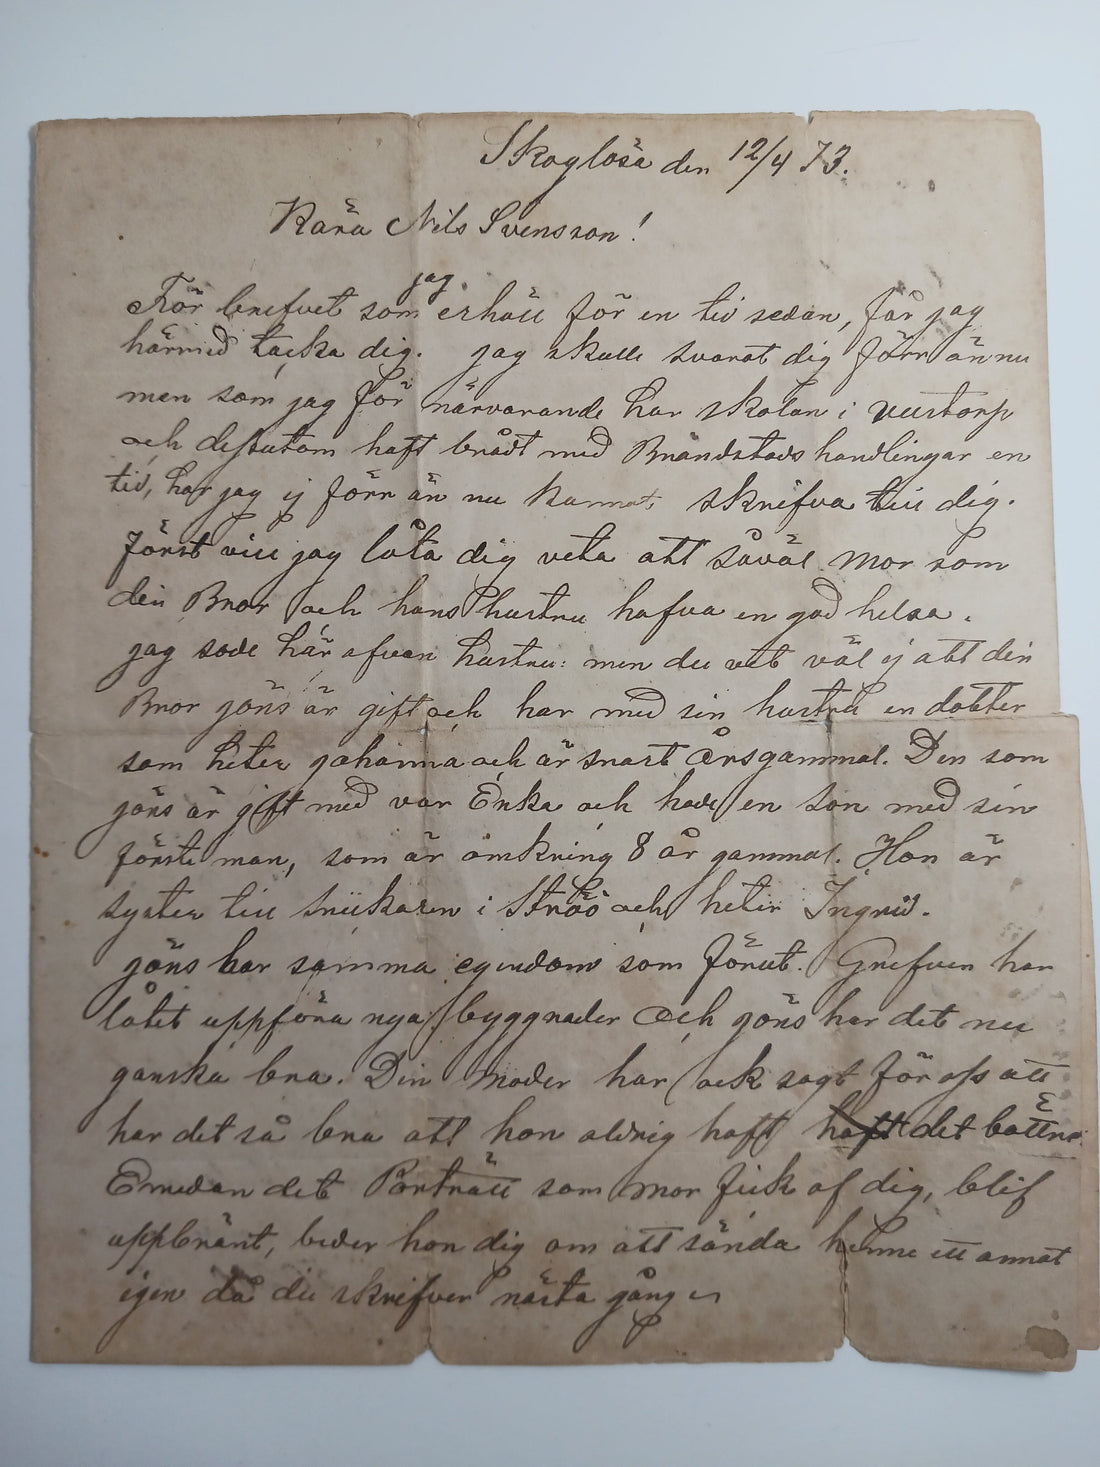 Skoglösa den 12/4 73.
Kära Nils Svensson!
För brefvet som jag erhåll för en tid sedan, får jag
härmed tacka dig. jag skulle svarat dig förr än nu
men som jag för närvarande har skolan i Vustorp
och dessutom haft brådt med Brandstads handlingar en
tid, har jag ej förr än nu kunnat skrifva till dig.
Först vill jag låta dig veta att såväl Mor som
din Bror och hans hustru hafva en god helsa.
jag sade här ofvan hustru: men du vet väl ej att din
Bror jöns är gift och har med sin hustru en dotter
som heter johanna och är snart årsgammal. Den som
jöns är gift med var Enka och hade en son med sin
förste man, som är omkring 8 år gammal. Hon är
syster till snickaren i Ströö och heter Ingrid.
jöns har samma egendom som förut. Grefven har
låtit uppföra nya byggnader och jöns har det nu
ganska bra. Din Moder har ock sagt för oss att
har det så bra att hon aldrig haft haft det bättre.
Emedan det Porträtt som mor fick af dig, blif
uppbränt, beder hon dig om att sända henne ett annat
igen då du skrifver nästa gång